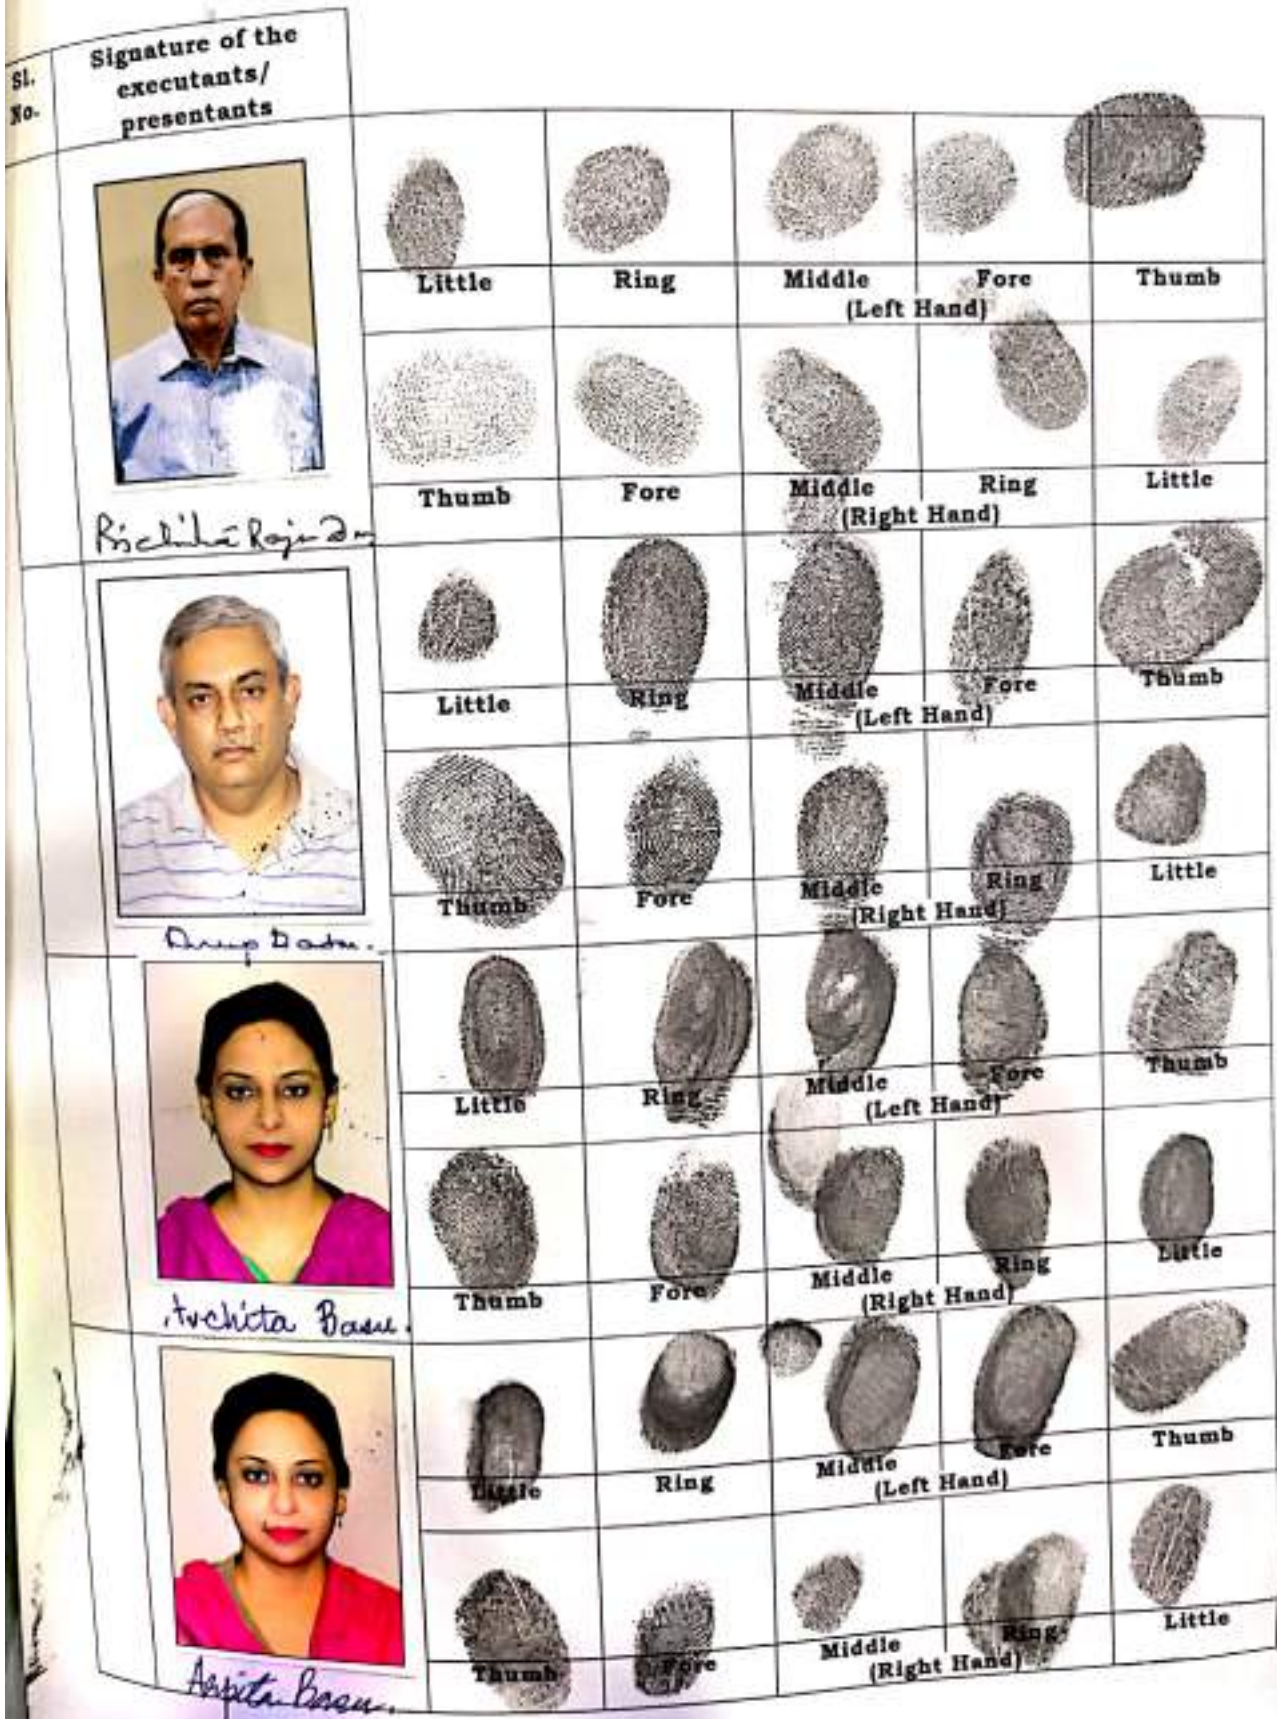 Sl.
No.
Signature of the
executants/
presentants
Little Ring Middle Fore Thumb
(Left Hand)
Thumb Fore Middle Ring Little
(Right Hand)
Little Ring Middle Fore Thumb
(Left Hand)
Thumb Fore Middle Ring Little
(Right Hand)
Little Ring Middle Fore Thumb
(Left Hand)
Thumb Fore Middle Ring Little
(Right Hand)
Archita Basu.
Little Ring Middle Fore Thumb
(Left Hand)
Thumb Fore Middle Ring Little
(Right Hand)
Arpita Basu.